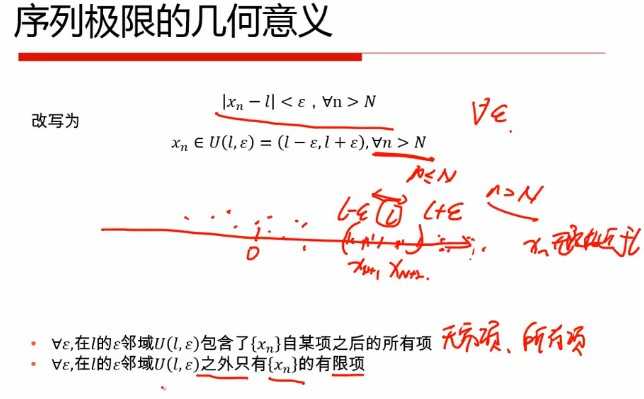 序列极限的几何意义
|xₙ − l| < ε , ∀n > N
∀ε.
改写为
xₙ ∈ U(l, ε) = (l − ε, l + ε), ∀n > N
n≤N
n>N
l-ε l l+ε
xₙ 无限接近于 l
0
x_{N+1} x_{N+2}
• ∀ε,在l的ε邻域U(l, ε)包含了{xₙ}自某项之后的所有项 无穷项、所有项
• ∀ε,在l的ε邻域U(l, ε)之外只有{xₙ}的有限项